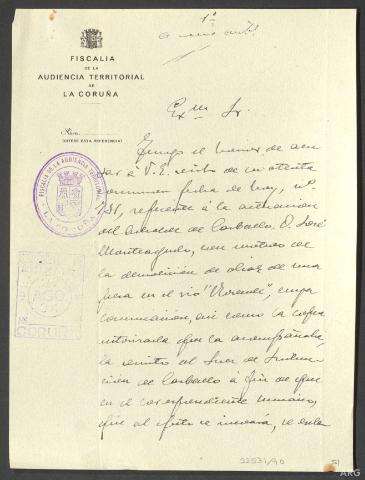 1º
FISCALIA
DE LA
AUDIENCIA TERRITORIAL
DE
LA CORUÑA
Exmo Sr.
Núm.
(CÍTESE ESTA REFERENCIA)
Tengo el honor de acu
sar á V.E. recibo de su atenta
comunicación fecha de hoy, nº
referente á la actuación
del Alcalde de Carballo D. José
con motivo de
la demolición de obras de una
presa en el río
comunicación, así como la copia
autorizada que la acompañaba,
la remito al Juez de Instruc-
ción de Carballo á fin de que
en el correspondiente sumario,
que al efecto se incoará, se
FISCALIA DE LA AUDIENCIA TERRITORIAL
LA CORUÑA
AGO
CORUÑA
ARG